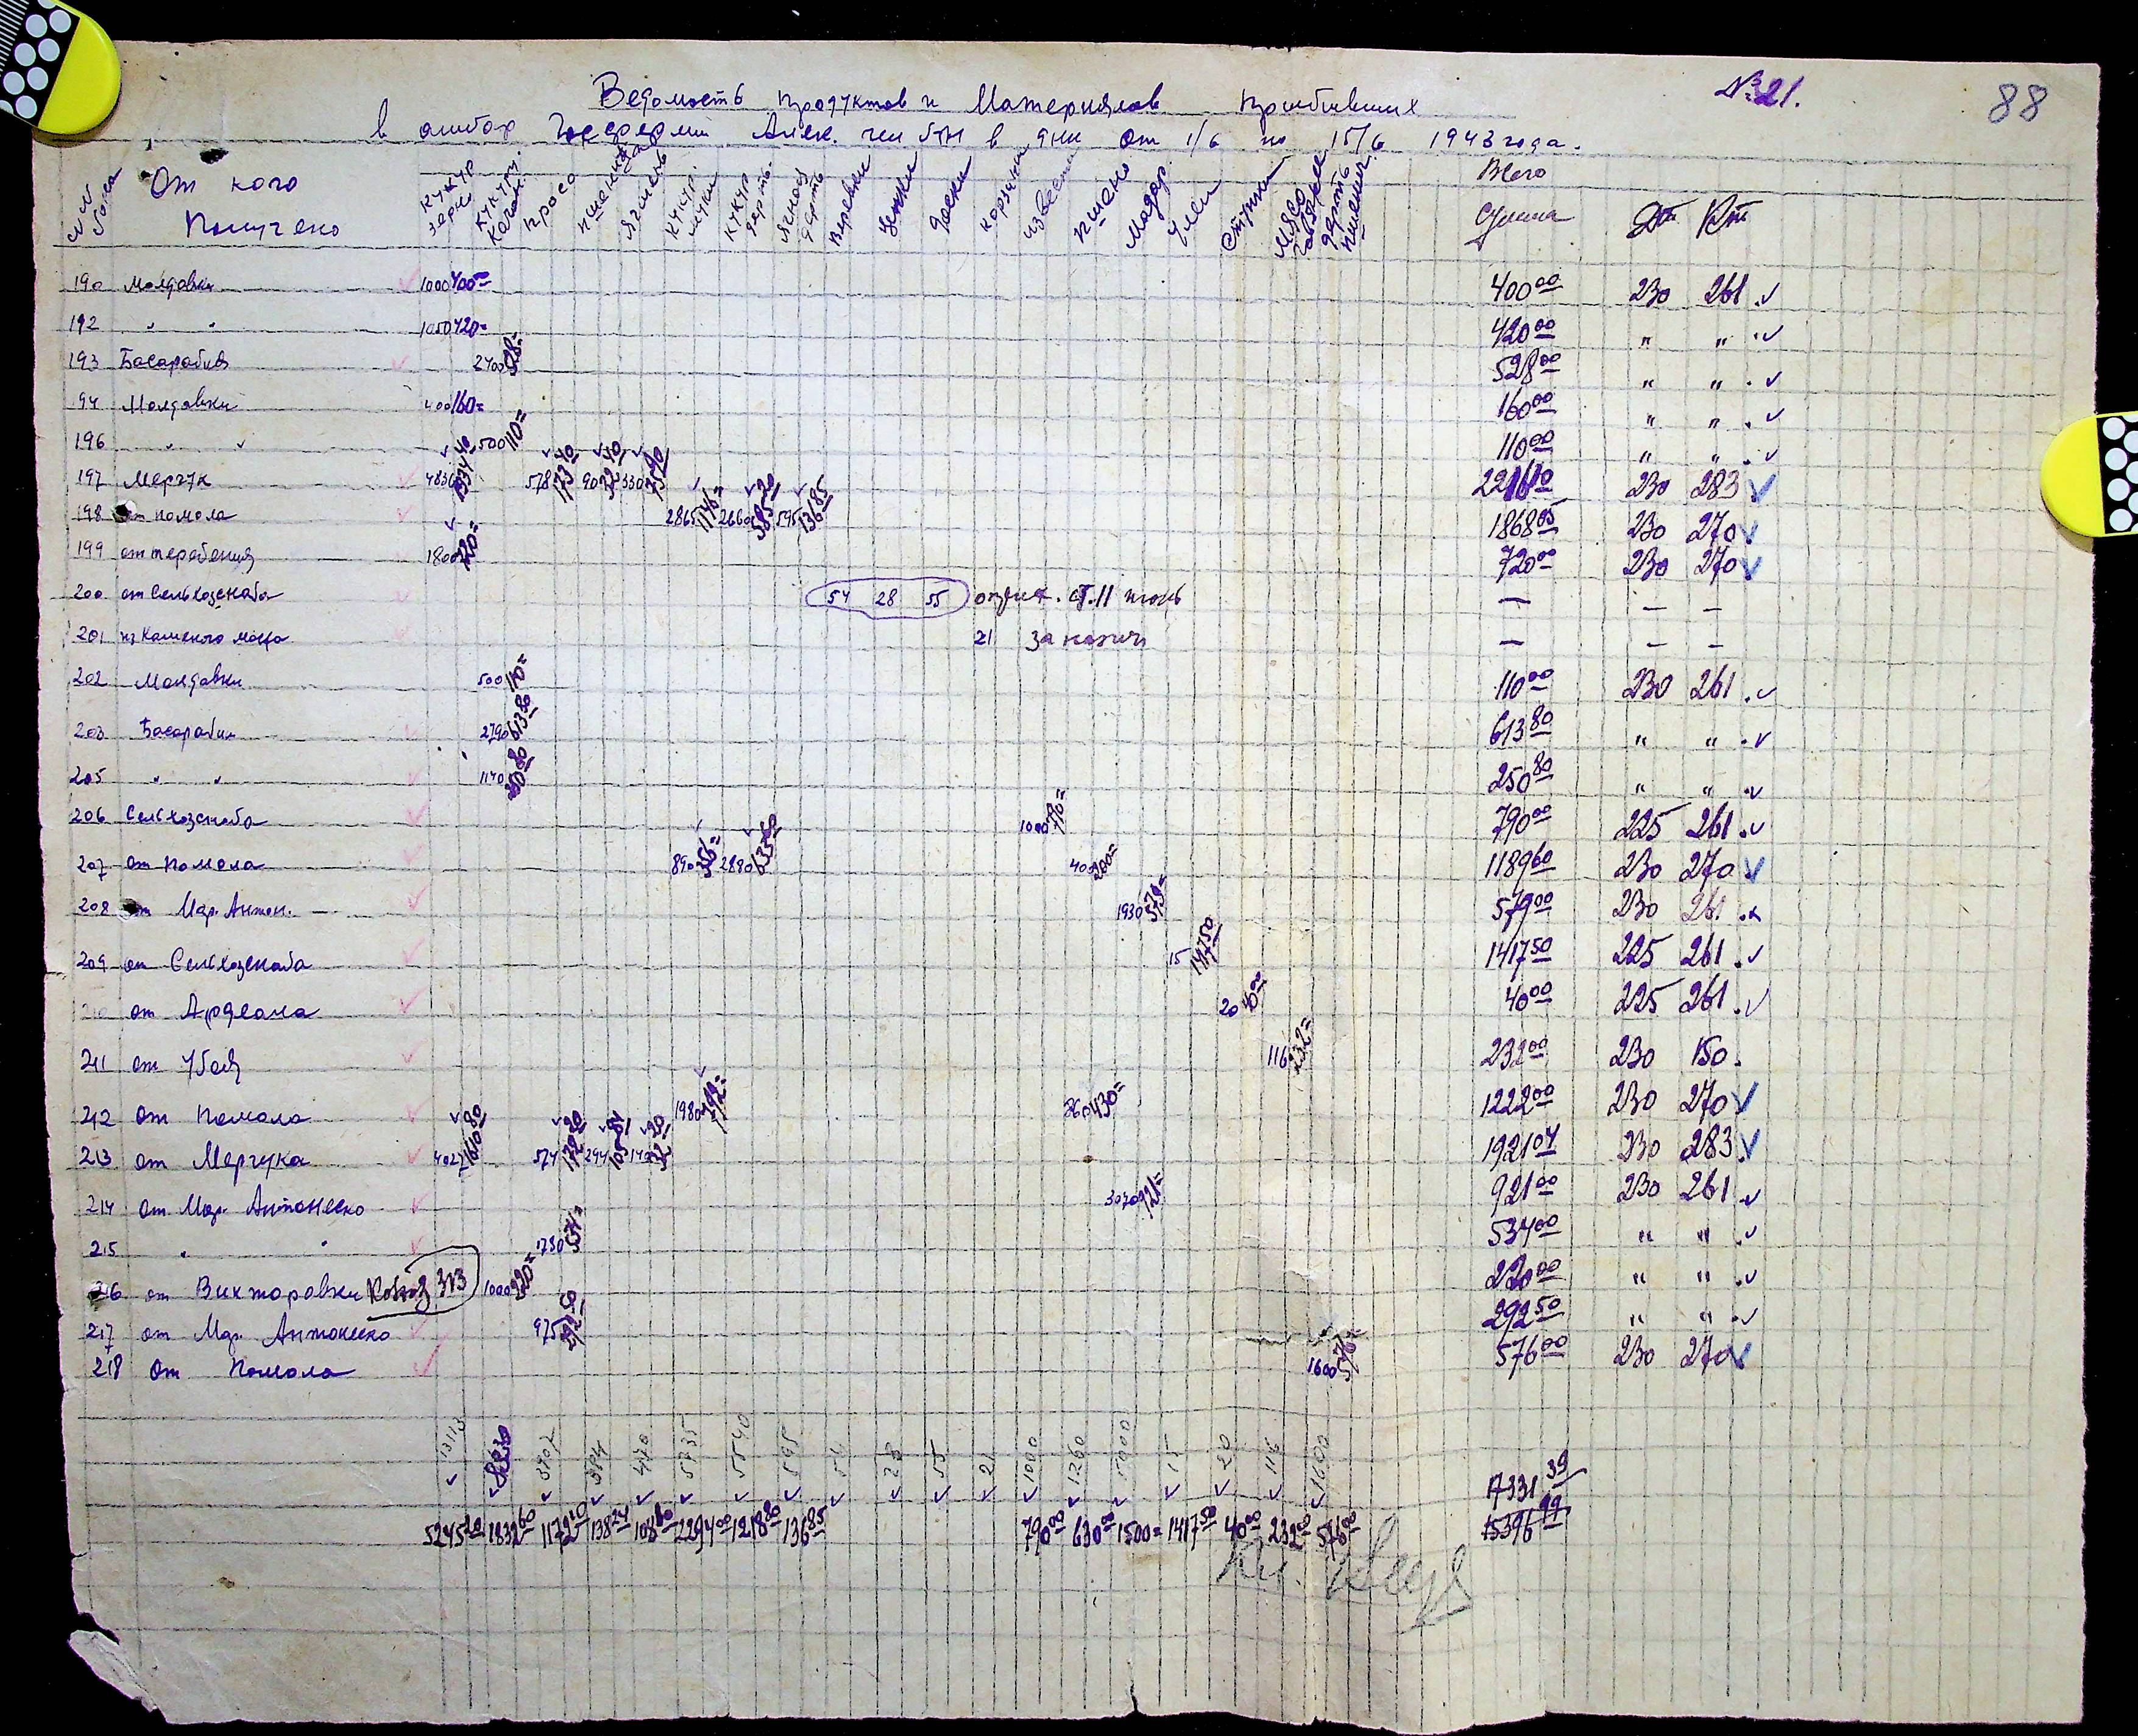 № 21.
88
Ведомость продуктов и Материялов прибывших
в амбар Госферми Алек. в дни от 1/6 по 15/6 1943 года.
От кого Получено
кукур зерно
кукуру. качан.
проса
пшеница
ячмень
кукур. муки
кукур. дерть
ячной дерть
Веревки
доски
корзины
известь
пшено
Мадар
Мясо говяжее
дерть пшенич.
Всего Сумма Дт Кт
190 Молдавки 1000 400= 400 00 230 261
192 " " 1050 420= 420 00 " "
193 Басарабия 2400 528= 528 00 " "
94 Молдавки 400 160= 160 00 " "
196 " " 500 110= 110 00 " "
197 Мергук 578 173 40 90 330 230 283
198 от помола 2865 1146= 2660 585 20 595 136 85 1868 05 230 270
199 от теребения 1800 720= 720 00 230 270
200 от Сельхозснаба 54 28 55 — — —
201 21 — — —
202 Молдавки 500 110= 110 00 230 261
203 Басарабия 2790 613 80 613 80 " "
205 " " 1140 250 80 250 80 " "
206 Сельхозснаба 1000 790= 790 00 225 261
207 от помола 890 356= 2880 633 60 400 200= 1189 60 230 270
208 от Мар. Антон. 1930 579= 579 00 230 261
209 от Сельхозснаба 15 1417 50 1417 50 225 261
от Ардеала 20 40 00 40 00 225 261
211 от Убоя 116 232= 232 00 230 150
212 от помола 1980 792= 860 430= 1222 00 230 270
213 от Мергука 4027 1610 80 574 172 20 294 105 84 140 32 20 1921 04 230 283
214 от Мар. Антонеско 3070 921= 921 00 230 261
215 " " 1780 534= 534 00 " "
216 от Викторовки 1000 220= 220 00 " "
217 от Мар. Антонеско 975 292 50 292 50 " "
218 От помола 1600 576= 576 00 230 270
13113 384 470 5735 5540 595 54 28 55 21 1000 1260 5000 15 20 116 1600
17331 39
5245 20 1832 60 1172 10 138 24 2294 00 1218 80 136 85 790 00 630 00 1500= 1417 50 40 00 232 00 576 00 15396